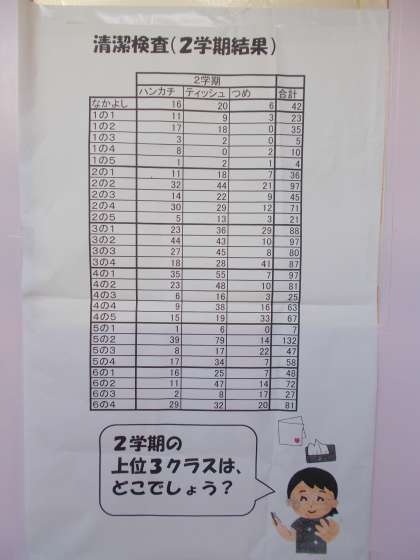 清潔検査(2学期結果)
2学期
ハンカチ ティッシュ つめ 合計
なかよし 16 20 6 42
1の1 11 9 3 23
1の2 17 18 0 35
1の3 3 2 0 5
1の4 8 0 2 10
1の5 1 2 1 4
2の1 11 18 7 36
2の2 32 44 21 97
2の3 14 22 9 45
2の4 30 29 12 71
2の5 5 13 3 21
3の1 23 36 29 88
3の2 44 43 10 97
3の3 27 45 8 80
3の4 18 28 41 87
4の1 35 55 7 97
4の2 23 48 10 81
4の3 6 16 3 25
4の4 9 38 16 63
4の5 15 19 33 67
5の1 1 6 0 7
5の2 39 79 14 132
5の3 8 17 22 47
5の4 17 34 7 58
6の1 16 25 7 48
6の2 11 47 14 72
6の3 2 8 17 27
6の4 29 32 20 81
2学期の
上位3クラスは、
どこでしょう?